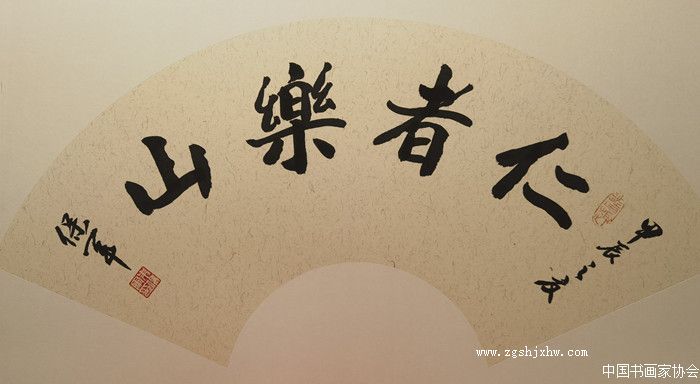 仁者樂山
甲辰之
www.zgshjxhw.com
中国书画家协会